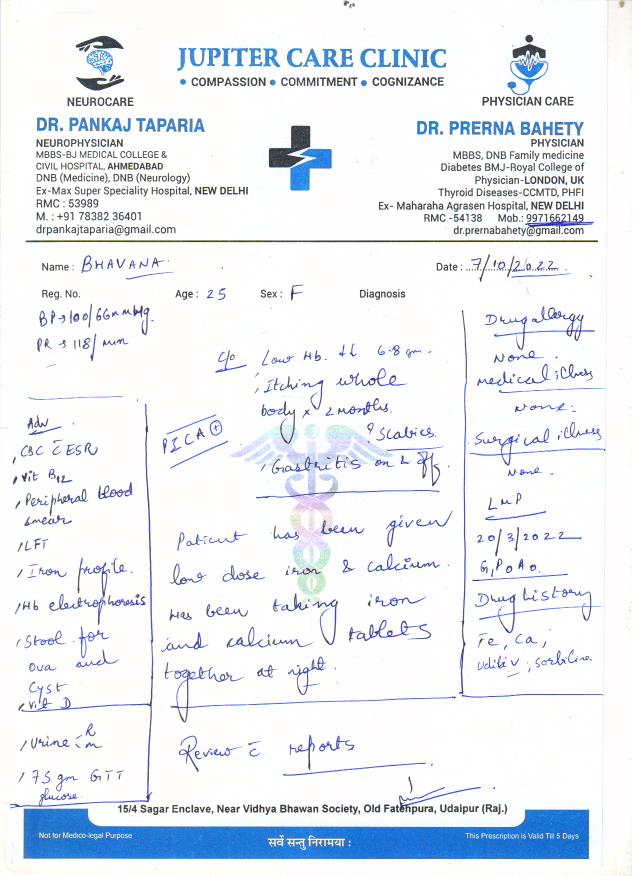 JUPITER CARE CLINIC
• COMPASSION • COMMITMENT • COGNIZANCE
NEUROCARE
PHYSICIAN CARE
DR. PANKAJ TAPARIA
NEUROPHYSICIAN
MBBS-BJ MEDICAL COLLEGE &
CIVIL HOSPITAL, AHMEDABAD
DNB (Medicine), DNB (Neurology)
Ex-Max Super Speciality Hospital, NEW DELHI
RMC : 53989
M. : +91 78382 36401
drpankajtaparia@gmail.com
DR. PRERNA BAHETY
PHYSICIAN
MBBS, DNB Family medicine
Diabetes BMJ-Royal College of
Physician-LONDON, UK
Thyroid Diseases-CCMTD, PHFI
Ex- Maharaha Agrasen Hospital, NEW DELHI
RMC -54138 Mob.: 9971662149
dr.prernabahety@gmail.com
Name : BHAVANA
Date : 7/10/2022
Reg. No. Age : 25 Sex : F Diagnosis
BP → 100/66 mmHg
PR → 118/min
Adv
CBC c̄ ESR
Vit B12
Peripheral blood
smear
LFT
Iron profile.
Hb electrophoresis
Stool for
ova and
Cyst
Vit D
Urine R/m
75 gm GTT
glucose
c/o Low Hb. 6.8 gm.
Itching whole
body x 2 months.
? Scabies
PICA ⊕
Gastritis on & off
Patient has been given
low dose iron & calcium.
Has been taking iron
and calcium tablets
together at night.
Review c̄ reports
Drug allergy
None.
medical illness
None.
Surgical illness
None.
LMP
20/3/2022
G1P0A0.
Drug history
Fe, Ca,
15/4 Sagar Enclave, Near Vidhya Bhawan Society, Old Fatehpura, Udaipur (Raj.)
Not for Medico-legal Purpose
सर्वे सन्तु निरामया :
This Prescription is Valid Till 5 Days